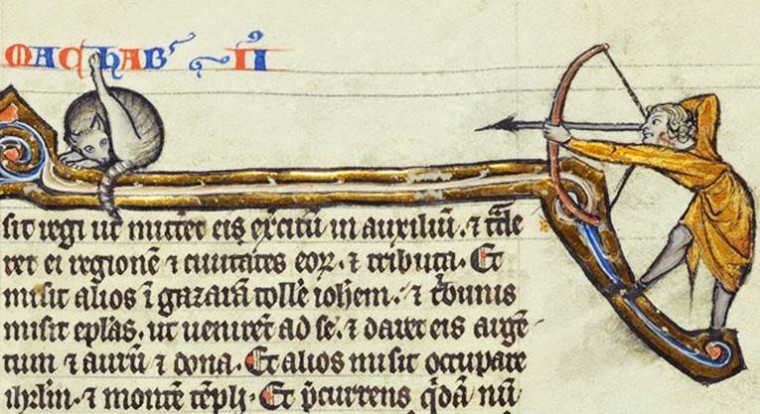 MACHAB II
sit regi ut mitter eis exercitū in auxiliū. ⁊ t̄de
ret ei regionē ⁊ ciuitates eoꝝ. ⁊ tributa. Et
misit alios ī gazarā tolle iohēm. ⁊ tͥbunis
misit eplas. ut uenirēt ad se. ⁊ daret eis argē
tum ⁊ aurū ⁊ dona. Et alios misit occupare
ihrlm̄. ⁊ montē tēpli. Et p̄currens qͥdā nū